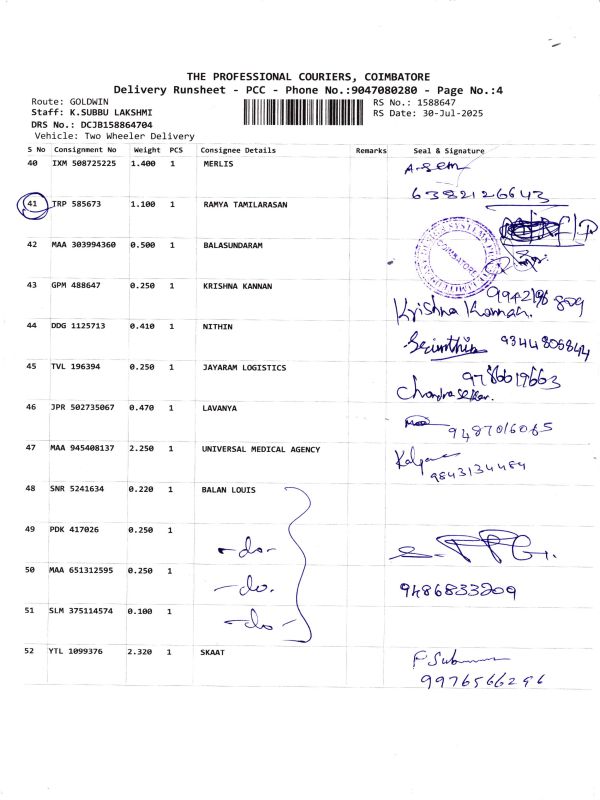 THE PROFESSIONAL COURIERS, COIMBATORE
Delivery Runsheet - PCC - Phone No.:9047080280 - Page No.:4
Route: GOLDWIN
Staff: K.SUBBU LAKSHMI
DRS No.: DCJB158864704
Vehicle: Two Wheeler Delivery
RS No.: 1588647
RS Date: 30-Jul-2025
S No Consignment No Weight PCS Consignee Details Remarks Seal & Signature
40 IXM 508725225 1.400 1 MERLIS
6382126643
41 TRP 585673 1.100 1 RAMYA TAMILARASAN
42 MAA 303994360 0.500 1 BALASUNDARAM
COIMBATORE
43 GPM 488647 0.250 1 KRISHNA KANNAN
Krishna Kannan.
44 DDG 1125713 0.410 1 NITHIN
9344805844
45 TVL 196394 0.250 1 JAYARAM LOGISTICS
9786619663
Chandrasekar.
46 JPR 502735067 0.470 1 LAVANYA
9487016065
47 MAA 945408137 2.250 1 UNIVERSAL MEDICAL AGENCY
Kalpana
9843134484
48 SNR 5241634 0.220 1 BALAN LOUIS
49 PDK 417026 0.250 1
-do-
50 MAA 651312595 0.250 1
-do.
9486833209
51 SLM 375114574 0.100 1
-do-
52 YTL 1099376 2.320 1 SKAAT
9976566296